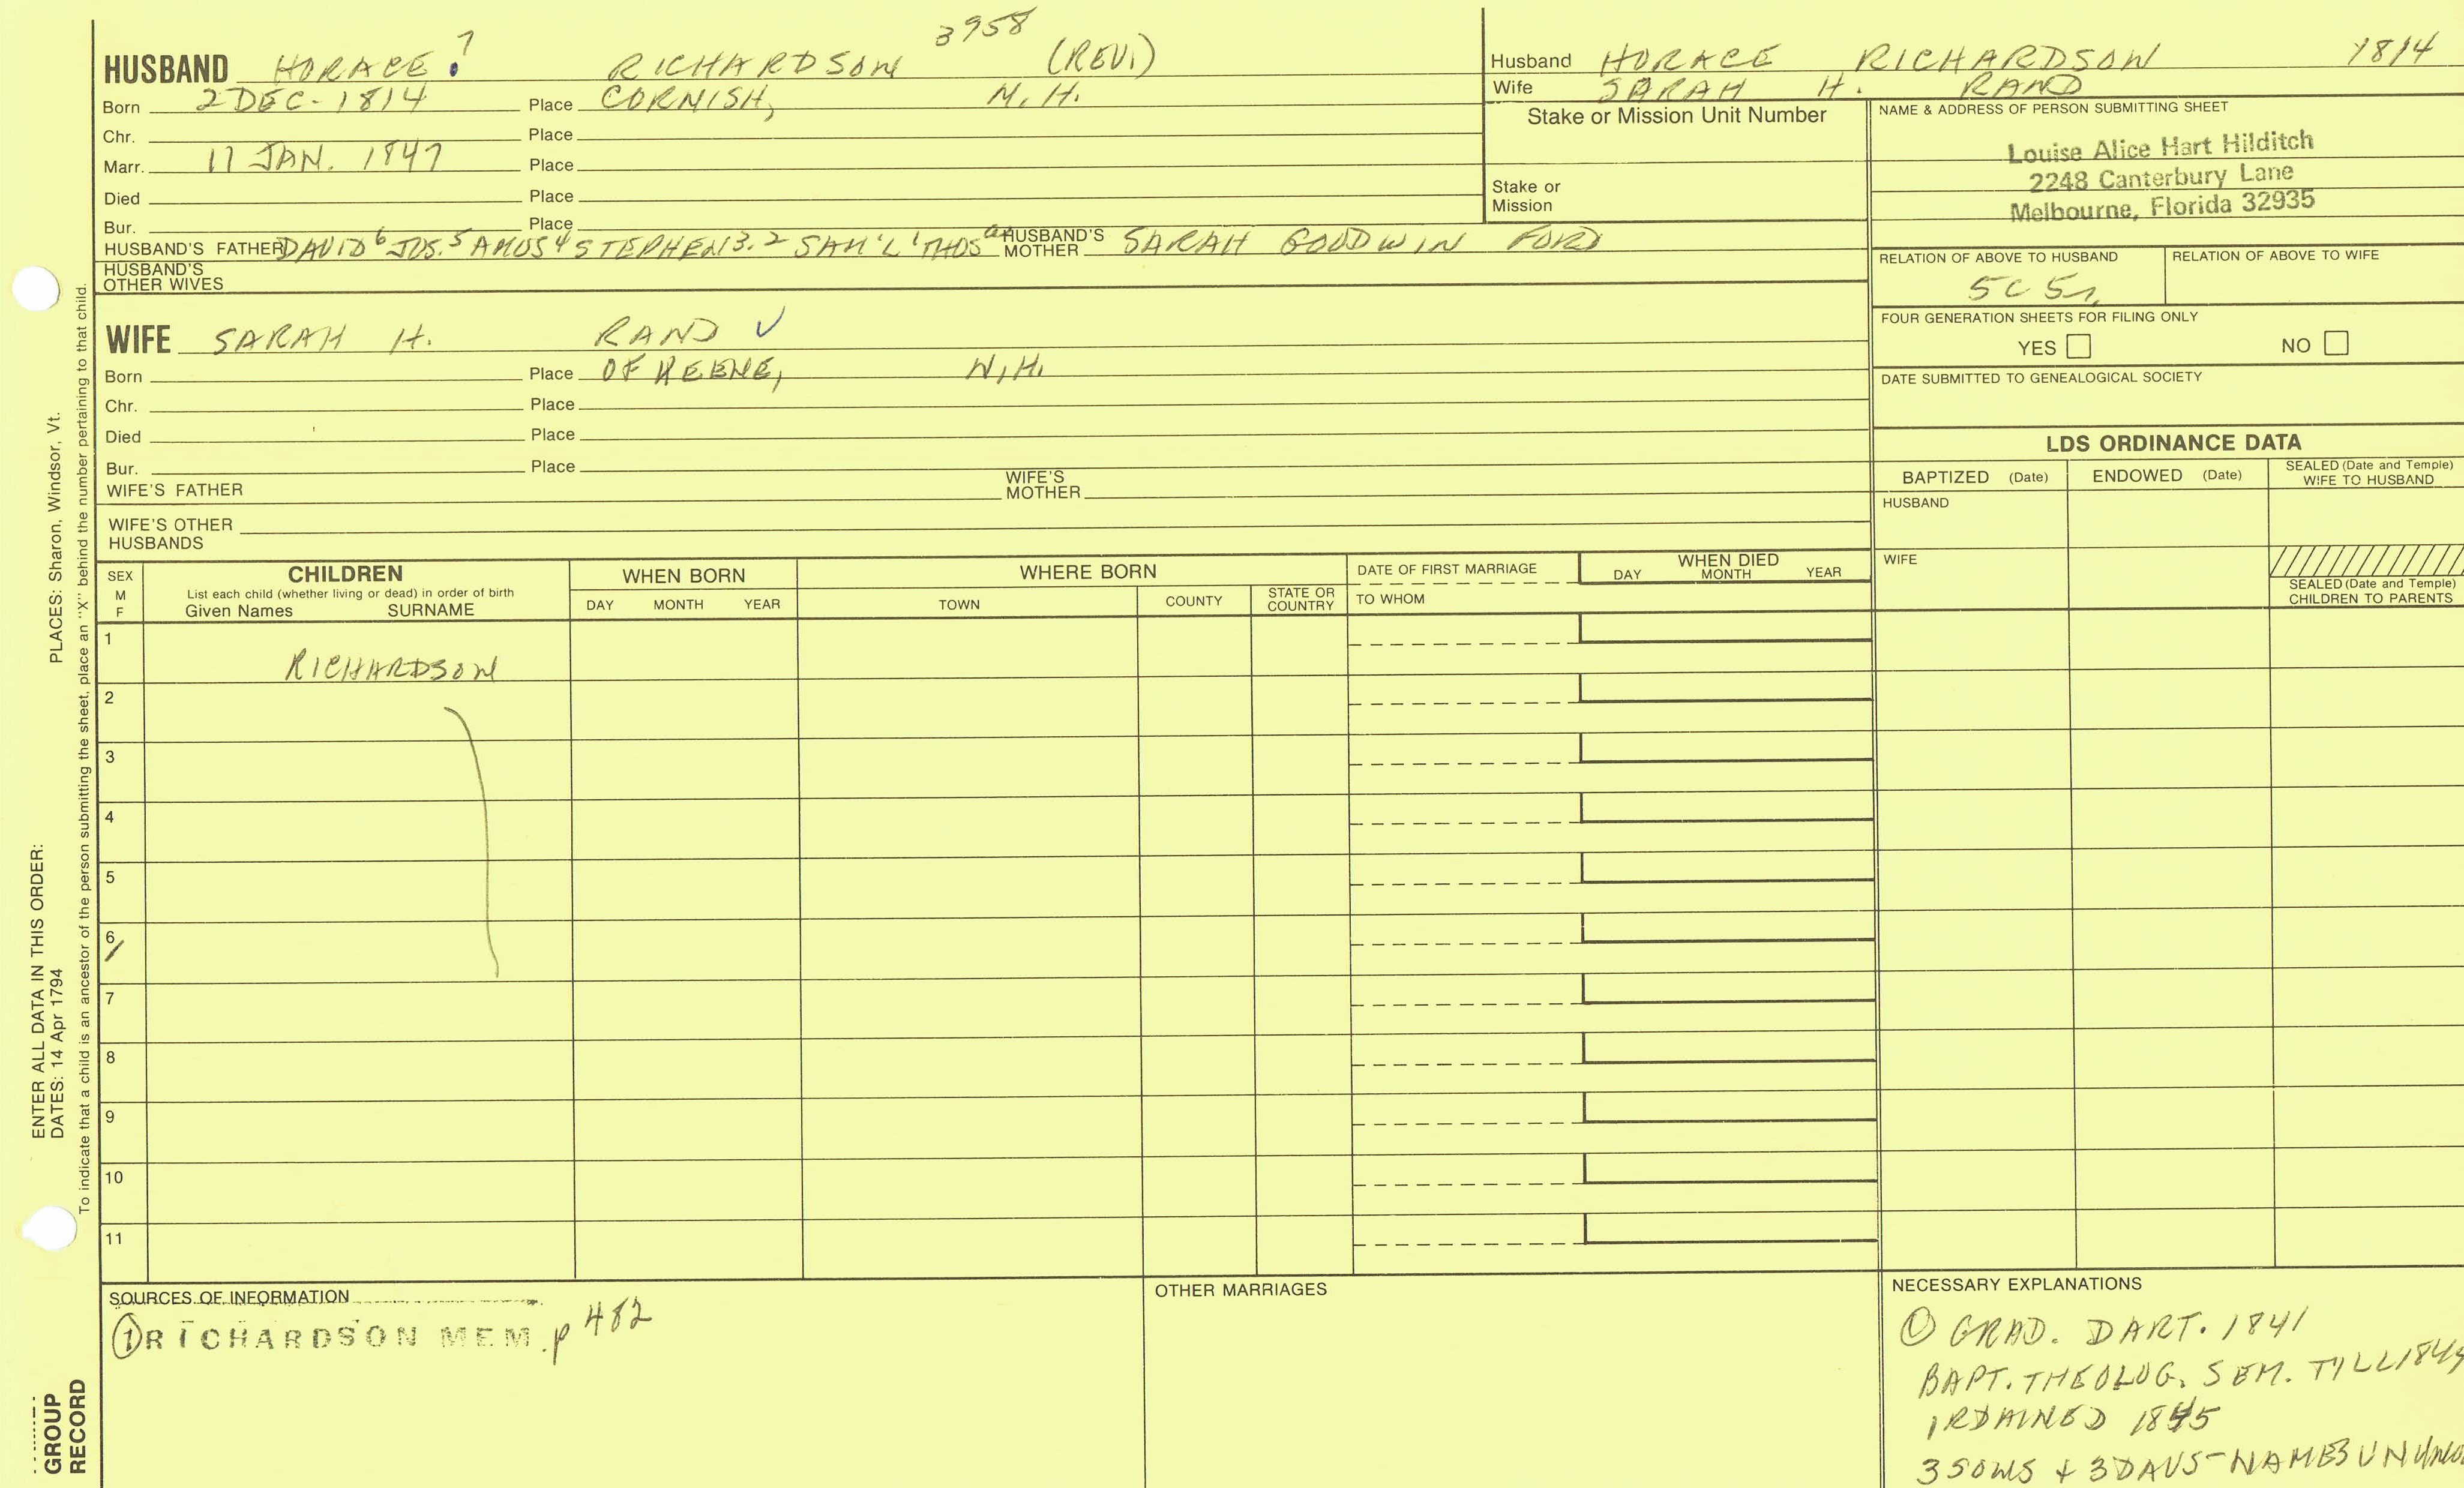 3958
HUSBAND HORACE 7 RICHARDSON (REV.)
Born 2 DEC - 1814 Place CORNISH, N.H.
Chr. Place
Marr. 11 JAN. 1847 Place
Died Place
Bur. Place
HUSBAND'S FATHER DAVID 6 JOS. 5 AMOS 4 STEPHEN 3. 2 SAM'L 1 THOS a HUSBAND'S MOTHER SARAH GOODWIN FORD
HUSBAND'S OTHER WIVES
WIFE SARAH H. RAND ✓
Born Place OF KEENE, N.H.
Chr. Place
Died Place
Bur. Place
WIFE'S FATHER WIFE'S MOTHER
WIFE'S OTHER HUSBANDS
Husband HORACE RICHARDSON 1814
Wife SARAH H. RAND
Stake or Mission Unit Number
Stake or Mission
NAME & ADDRESS OF PERSON SUBMITTING SHEET
Louise Alice Hart Hilditch
2248 Canterbury Lane
Melbourne, Florida 32935
RELATION OF ABOVE TO HUSBAND RELATION OF ABOVE TO WIFE
5C 5r
FOUR GENERATION SHEETS FOR FILING ONLY
YES NO
DATE SUBMITTED TO GENEALOGICAL SOCIETY
LDS ORDINANCE DATA
BAPTIZED (Date) ENDOWED (Date) SEALED (Date and Temple) WIFE TO HUSBAND
HUSBAND
WIFE
SEALED (Date and Temple) CHILDREN TO PARENTS
SEX M F
CHILDREN
List each child (whether living or dead) in order of birth
Given Names SURNAME
WHEN BORN
DAY MONTH YEAR
WHERE BORN
TOWN COUNTY STATE OR COUNTRY
DATE OF FIRST MARRIAGE
TO WHOM
WHEN DIED
DAY MONTH YEAR
1 RICHARDSON
2
3
4
5
6
7
8
9
10
11
SOURCES OF INFORMATION
① RICHARDSON MEM. p 482
OTHER MARRIAGES
NECESSARY EXPLANATIONS
① GRAD. DART. 1841
BAPT. THEOLOG. SEM. TILL
1RDAINED 1845
3 SONS + 3 DAUS - NAMES
PLACES: Sharon, Windsor, Vt.
ENTER ALL DATA IN THIS ORDER:
DATES: 14 Apr 1794
To indicate that a child is an ancestor of the person submitting the sheet, place an "X" behind the number pertaining to that child.
GROUP
RECORD